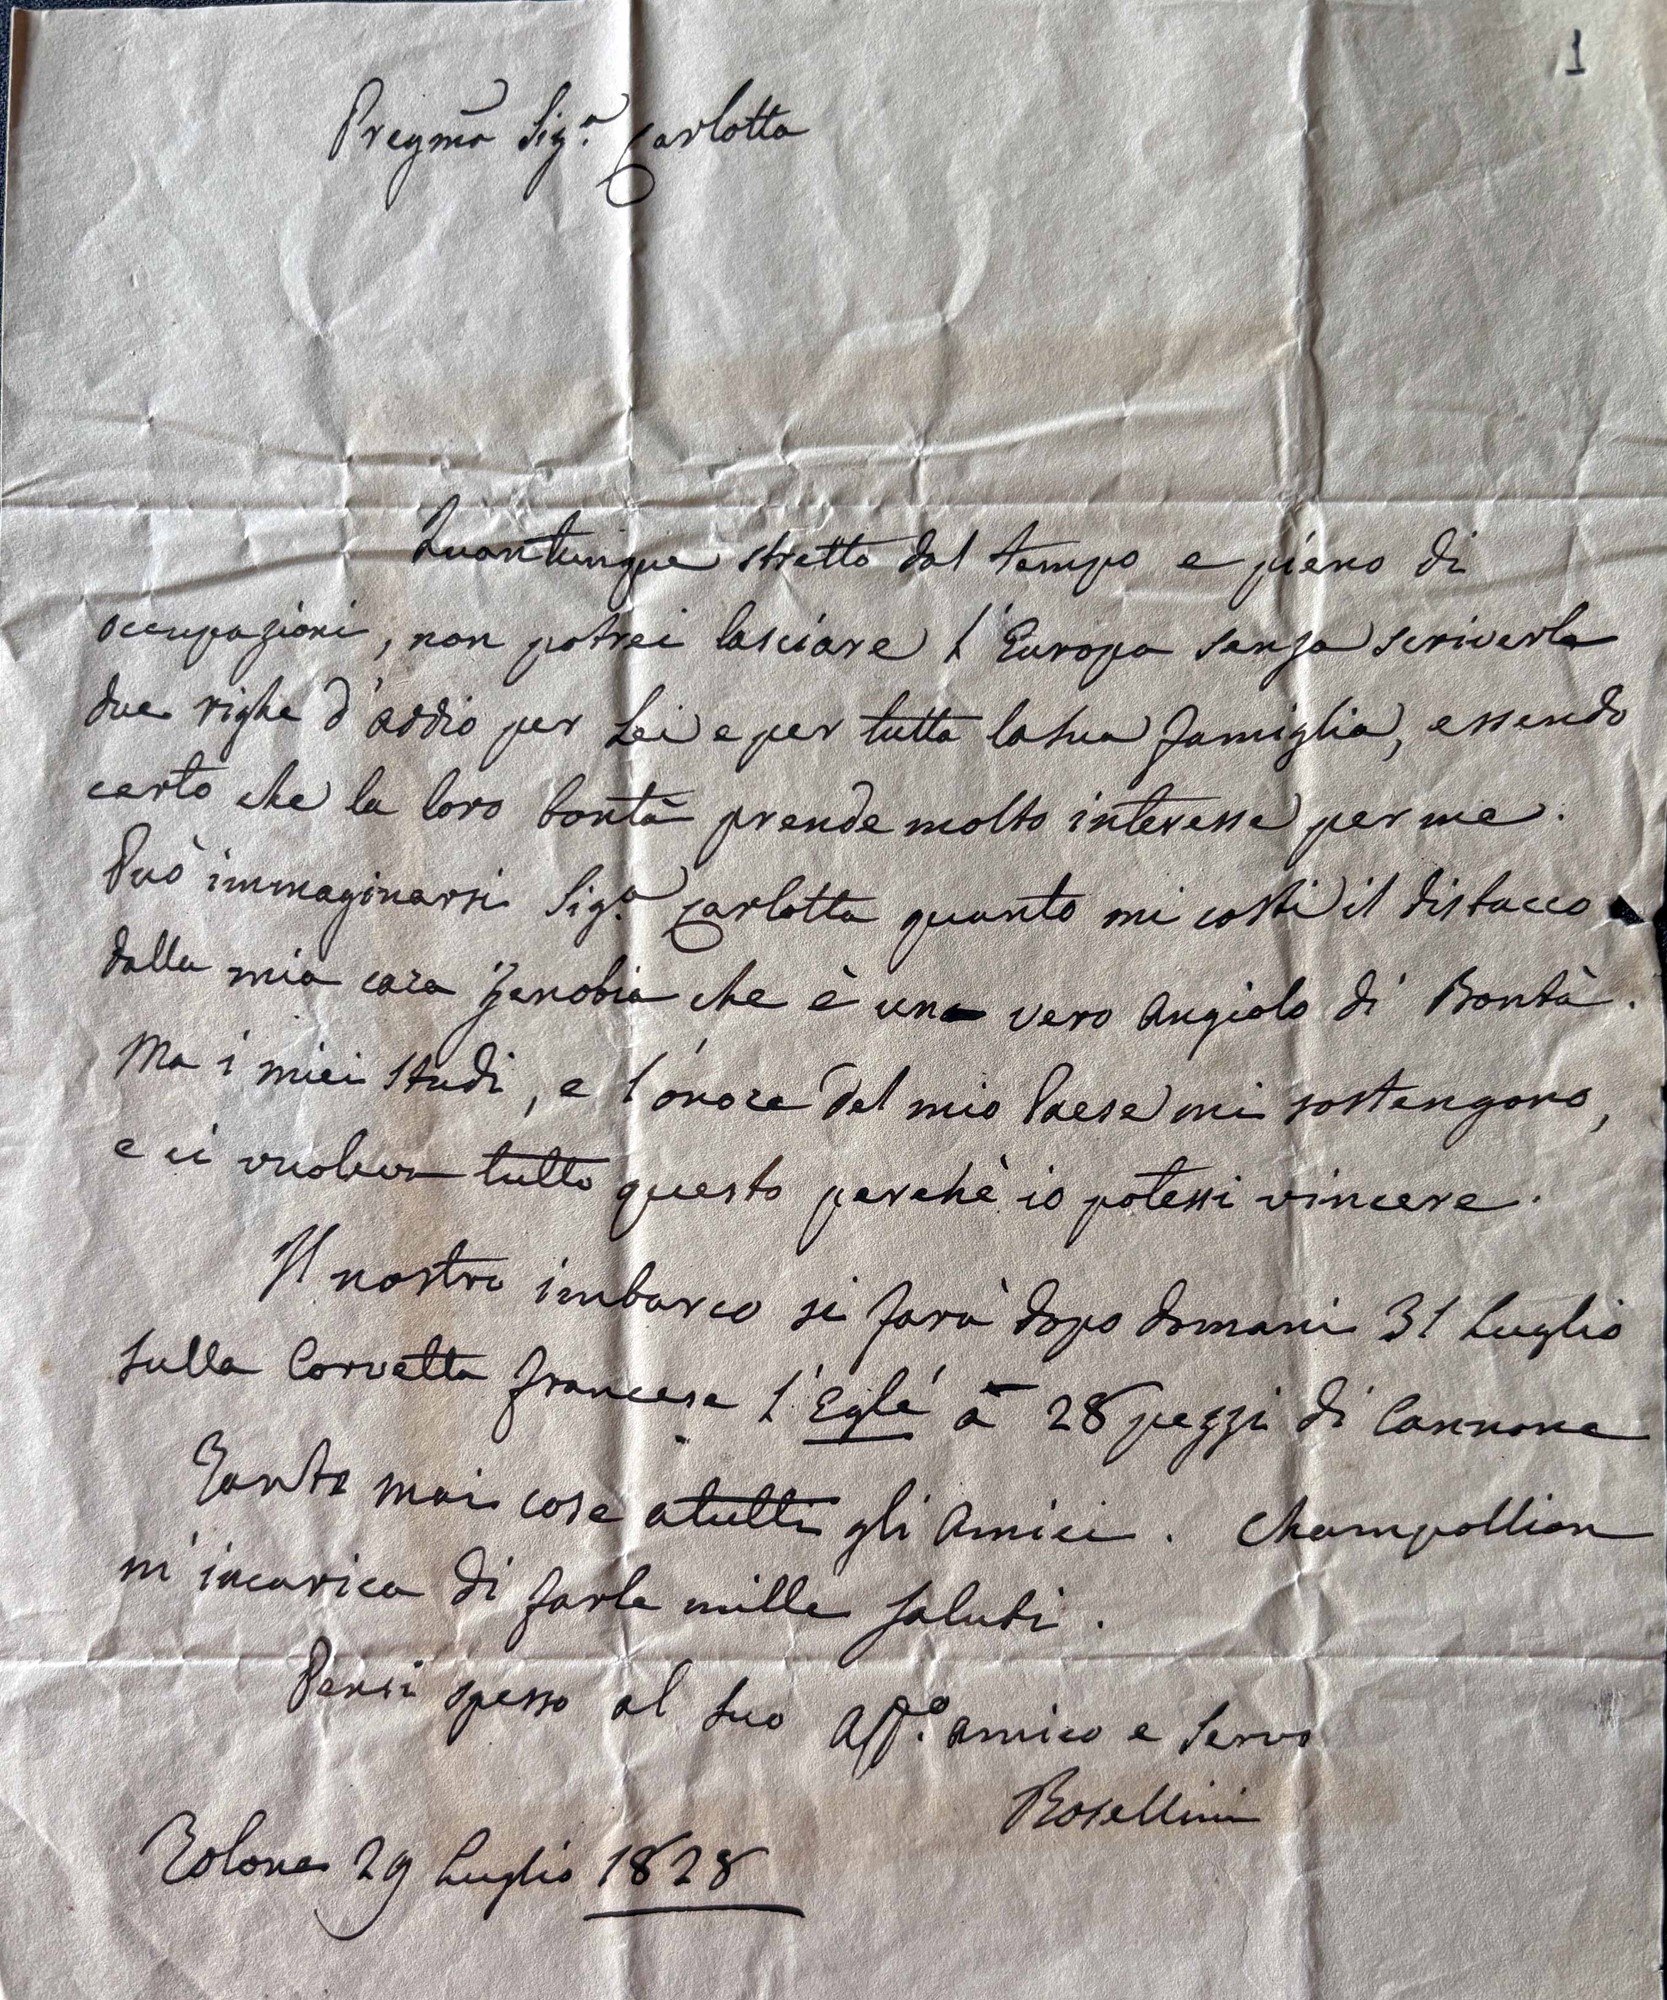 1
Pregma Sig.a Carlotta
Quantunque stretto dal tempo e pieno di
occupazioni, non potrei lasciare l'Europa senza scriverle
due righe d'addio per Lei e per tutta la sua famiglia, essendo
certo che la loro bontà prende molto interesse per me.
Può immaginarsi Sig.a Carlotta quanto mi costi il distacco
dalla mia cara Zenobia che è un vero Angiolo di Bontà.
Ma i miei studi, e l'onore del mio Paese mi sostengono,
e ci voleva tutto questo perchè io potessi vincere.
Il nostro imbarco si farà dopo domani 31 Luglio
sulla Corvetta francese l'Eglé à 28 pezzi di Cannone
Tante mai cose a tutti gli Amici. Champollion
m'incarica di farle mille saluti.
Pensi spesso al suo Aff.o Amico e Servo
Rosellini
Tolone 29 Luglio 1828